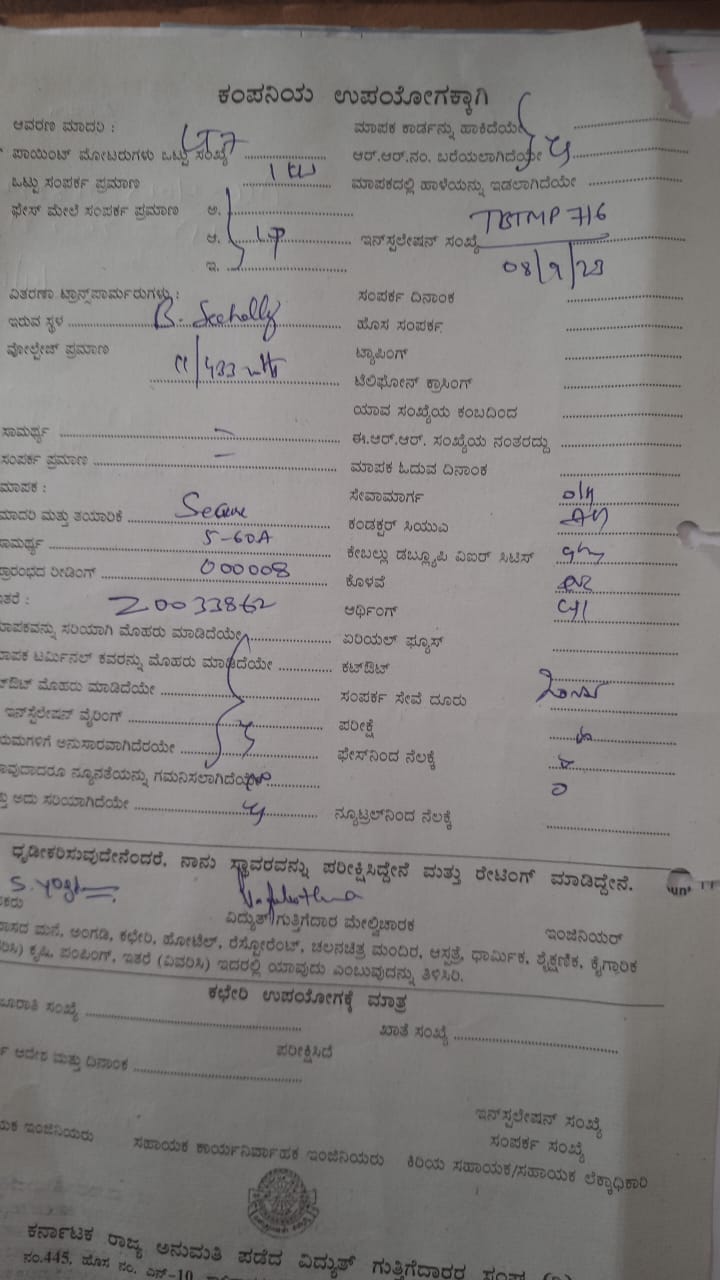 ಕಂಪನಿಯ ಉಪಯೋಗಕ್ಕಾಗಿ
ಆವರಣ ಮಾದರಿ : LT7
ಮಾಪಕ ಕಾರ್ಡನ್ನು ಹಾಕಿದೆಯೇ
ಪಾಯಿಂಟ್ ಮೋಟರುಗಳು ಒಟ್ಟು ಸಂಖ್ಯೆ
ಆರ್.ಆರ್.ನಂ. ಬರೆಯಲಾಗಿದೆಯೇ
ಒಟ್ಟು ಸಂಪರ್ಕ ಪ್ರಮಾಣ 1 kW
ಮಾಪಕದಲ್ಲಿ ಹಾಳೆಯನ್ನು ಇಡಲಾಗಿದೆಯೇ
ಫೇಸ್ ಮೇಲೆ ಸಂಪರ್ಕ ಪ್ರಮಾಣ ಅ.
ಆ. 1P
ಇ.
ಇನ್‌ಸ್ಟಲೇಷನ್ ಸಂಖ್ಯೆ TBTMP 716
08/9/23
ವಿತರಣಾ ಟ್ರಾನ್ಸ್‌ಪಾರ್ಮರುಗಳು :
ಸಂಪರ್ಕ ದಿನಾಂಕ
ಇರುವ ಸ್ಥಳ B. Seehally
ಹೊಸ ಸಂಪರ್ಕ
ವೋಲ್ಟೇಜ್ ಪ್ರಮಾಣ 11/433
ಟ್ಯಾಪಿಂಗ್
ಟೆಲಿಫೋನ್ ಕ್ರಾಸಿಂಗ್
ಯಾವ ಸಂಖ್ಯೆಯ ಕಂಬದಿಂದ
ಸಾಮರ್ಥ್ಯ –
ಈ.ಆರ್.ಆರ್. ಸಂಖ್ಯೆಯ ನಂತರದ್ದು
ಸಂಪರ್ಕ ಪ್ರಮಾಣ –
ಮಾಪಕ ಓದುವ ದಿನಾಂಕ
ಮಾಪಕ :
ಸೇವಾಮಾರ್ಗ O/H
ಮಾದರಿ ಮತ್ತು ತಯಾರಿಕೆ Secure
ಕಂಡಕ್ಟರ್ ಸಿಯುಎ
ಸಾಮರ್ಥ್ಯ 5-60A
ಕೇಬಲ್ಲು ಡಬ್ಲ್ಯೂಪಿ ವಿಐರ್ ಸಿಟಿಸ್
ಪ್ರಾರಂಭದ ರೀಡಿಂಗ್ 000008
ಕೊಳವೆ
ಇತರೆ : Z0033862
ಆರ್ಥಿಂಗ್
ಮಾಪಕವನ್ನು ಸರಿಯಾಗಿ ಮೊಹರು ಮಾಡಿದೆಯೇ
ಏರಿಯಲ್ ಫ್ಯೂಸ್
ಮಾಪಕ ಟರ್ಮಿನಲ್ ಕವರನ್ನು ಮೊಹರು ಮಾಡಿದೆಯೇ
ಕಟ್‌ಔಟ್
ಮೊಹರು ಮಾಡಿದೆಯೇ
ಸಂಪರ್ಕ ಸೇವೆ ದೂರು
ಇನ್‌ಸ್ಟಲೇಷನ್ ವೈರಿಂಗ್
ಪರೀಕ್ಷೆ
ಅನುಸಾರವಾಗಿದೆರಯೇ
ಫೇಸ್‌ನಿಂದ ನೆಲಕ್ಕೆ
ನ್ಯೂನತೆಯನ್ನು ಗಮನಿಸಲಾಗಿದೆಯೇ
ಅದು ಸರಿಯಾಗಿದೆಯೇ
ನ್ಯೂಟ್ರಲ್‌ನಿಂದ ನೆಲಕ್ಕೆ
ಧೃಡೀಕರಿಸುವುದೇನೆಂದರೆ, ನಾನು ಸ್ಥಾವರವನ್ನು ಪರೀಕ್ಷಿಸಿದ್ದೇನೆ ಮತ್ತು ರೇಟಿಂಗ್ ಮಾಡಿದ್ದೇನೆ.
ವಿದ್ಯುತ್ ಗುತ್ತಿಗೆದಾರ ಮೇಲ್ವಿಚಾರಕ
ಇಂಜಿನಿಯರ್
ಮನೆ, ಅಂಗಡಿ, ಕಛೇರಿ, ಹೋಟೆಲ್, ರೆಸ್ಟೋರೆಂಟ್, ಚಲನಚಿತ್ರ ಮಂದಿರ, ಆಸ್ಪತ್ರೆ, ಧಾರ್ಮಿಕ, ಶೈಕ್ಷಣಿಕ, ಕೈಗಾರಿಕ
ಕೃಷಿ, ಪಂಪಿಂಗ್, ಇತರೆ (ವಿವರಿಸಿ) ಇದರಲ್ಲಿ ಯಾವುದು ಎಂಬುವುದನ್ನು ತಿಳಿಸಿರಿ.
ಕಛೇರಿ ಉಪಯೋಗಕ್ಕೆ ಮಾತ್ರ
ಸಂಖ್ಯೆ
ಖಾತೆ ಸಂಖ್ಯೆ
ಪರೀಕ್ಷಿಸಿದೆ
ಆದೇಶ ಮತ್ತು ದಿನಾಂಕ
ಇನ್‌ಸ್ಟಲೇಷನ್ ಸಂಖ್ಯೆ
ಸಂಪರ್ಕ ಸಂಖ್ಯೆ
ಇಂಜಿನಿಯರು
ಸಹಾಯಕ ಕಾರ್ಯನಿರ್ವಾಹಕ ಇಂಜಿನಿಯರು
ಕಿರಿಯ ಸಹಾಯಕ/ಸಹಾಯಕ ಲೆಕ್ಕಾಧಿಕಾರಿ
ಕರ್ನಾಟಕ ರಾಜ್ಯ ಅನುಮತಿ ಪಡೆದ ವಿದ್ಯುತ್ ಗುತ್ತಿಗೆದಾರರ ಸಂಘ
ನಂ.445, ಹೊಸ ನಂ. ಎನ್-10